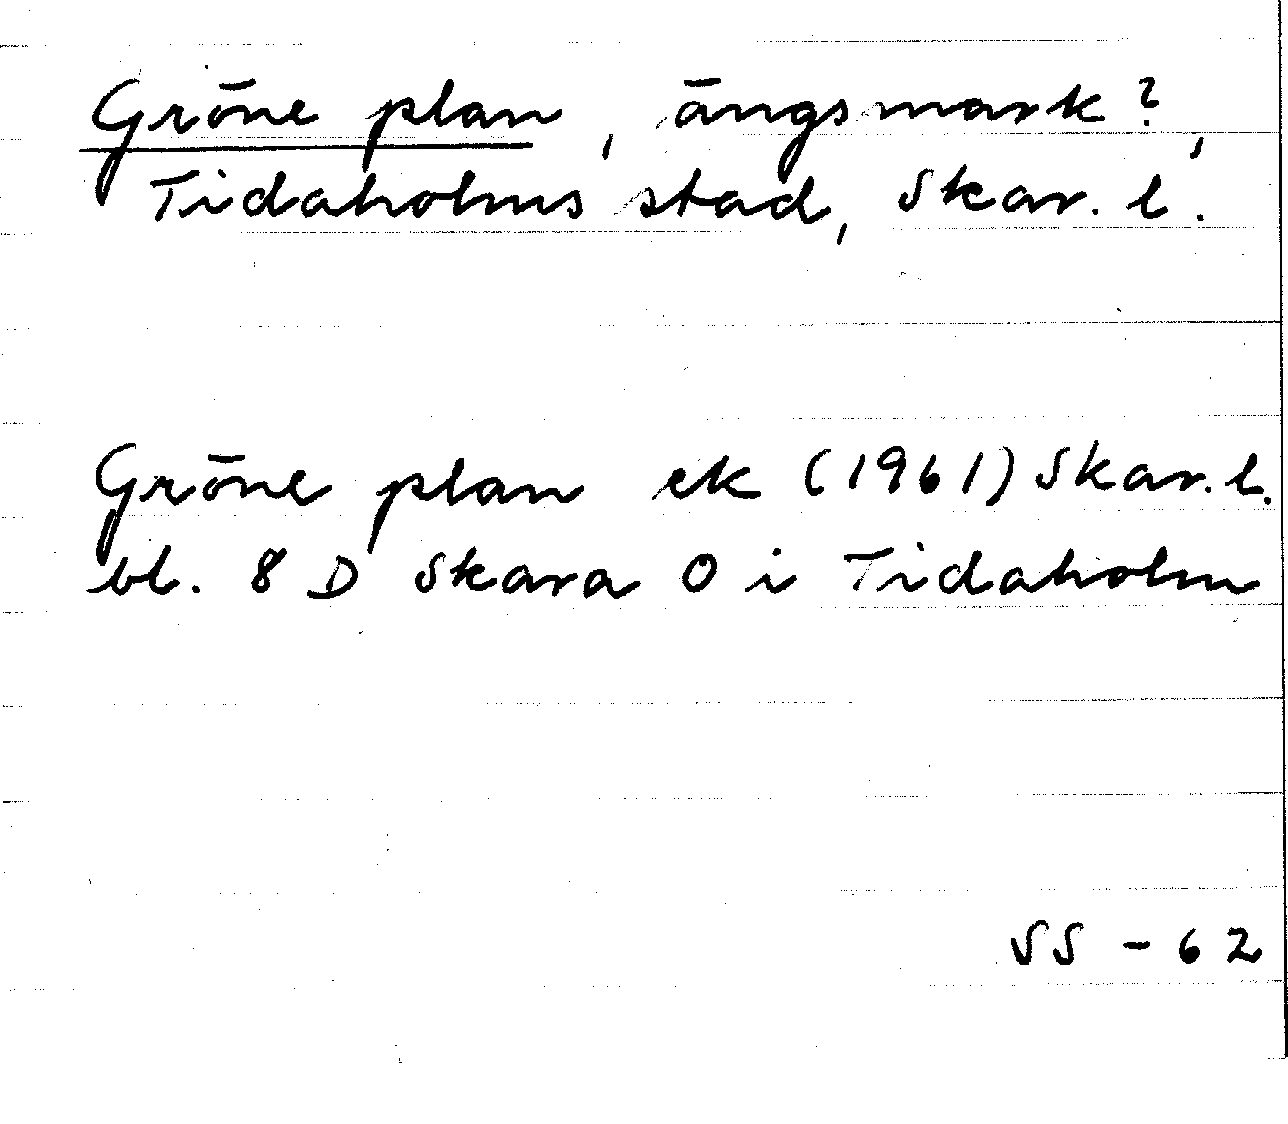 Gröne plan, ängsmark?,
Tidaholms stad, Skar. l.
Gröne plan ek (1961) Skar. l.
bl. 8 D Skara O i Tidaholm
SS - 62